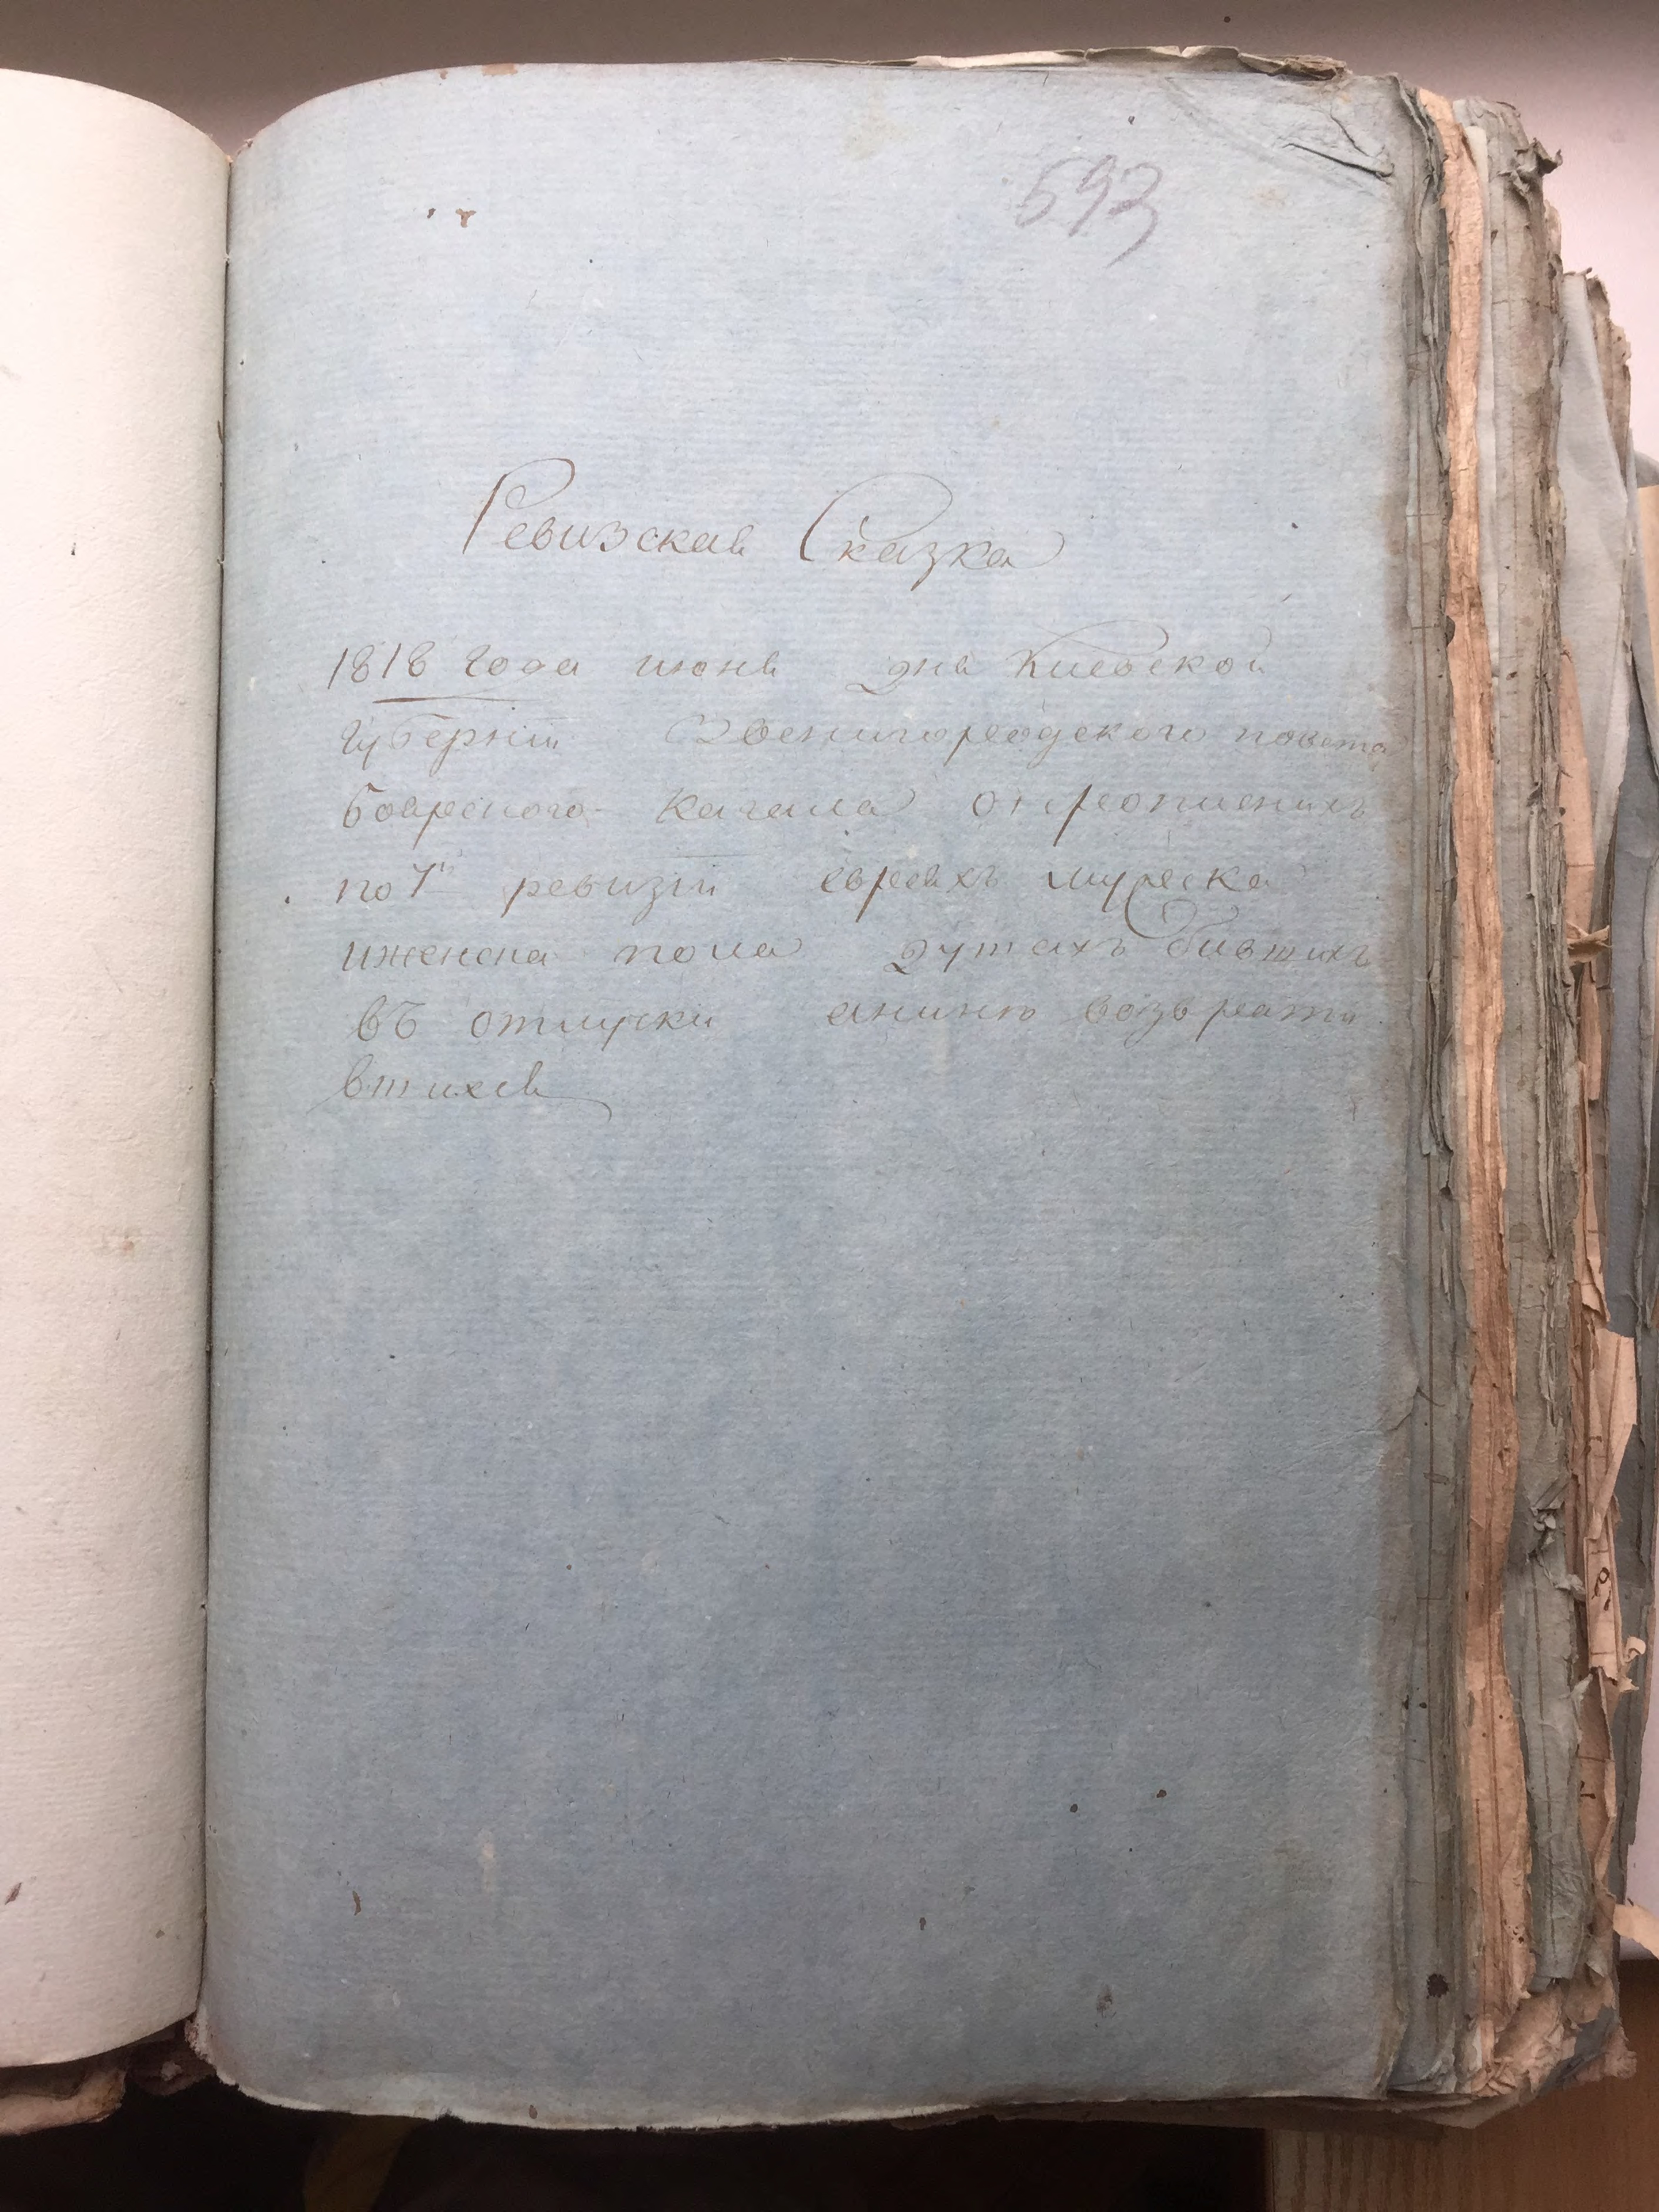 593
Ревизская Сказка
1818 года июня дня Киевской
губернiи Звенигородского повета
боярского кагала
по 7й ревизiи евреяхъ мужеска
иженска пола душахъ бившихъ
въ отлучки аниню возврати
вшихся